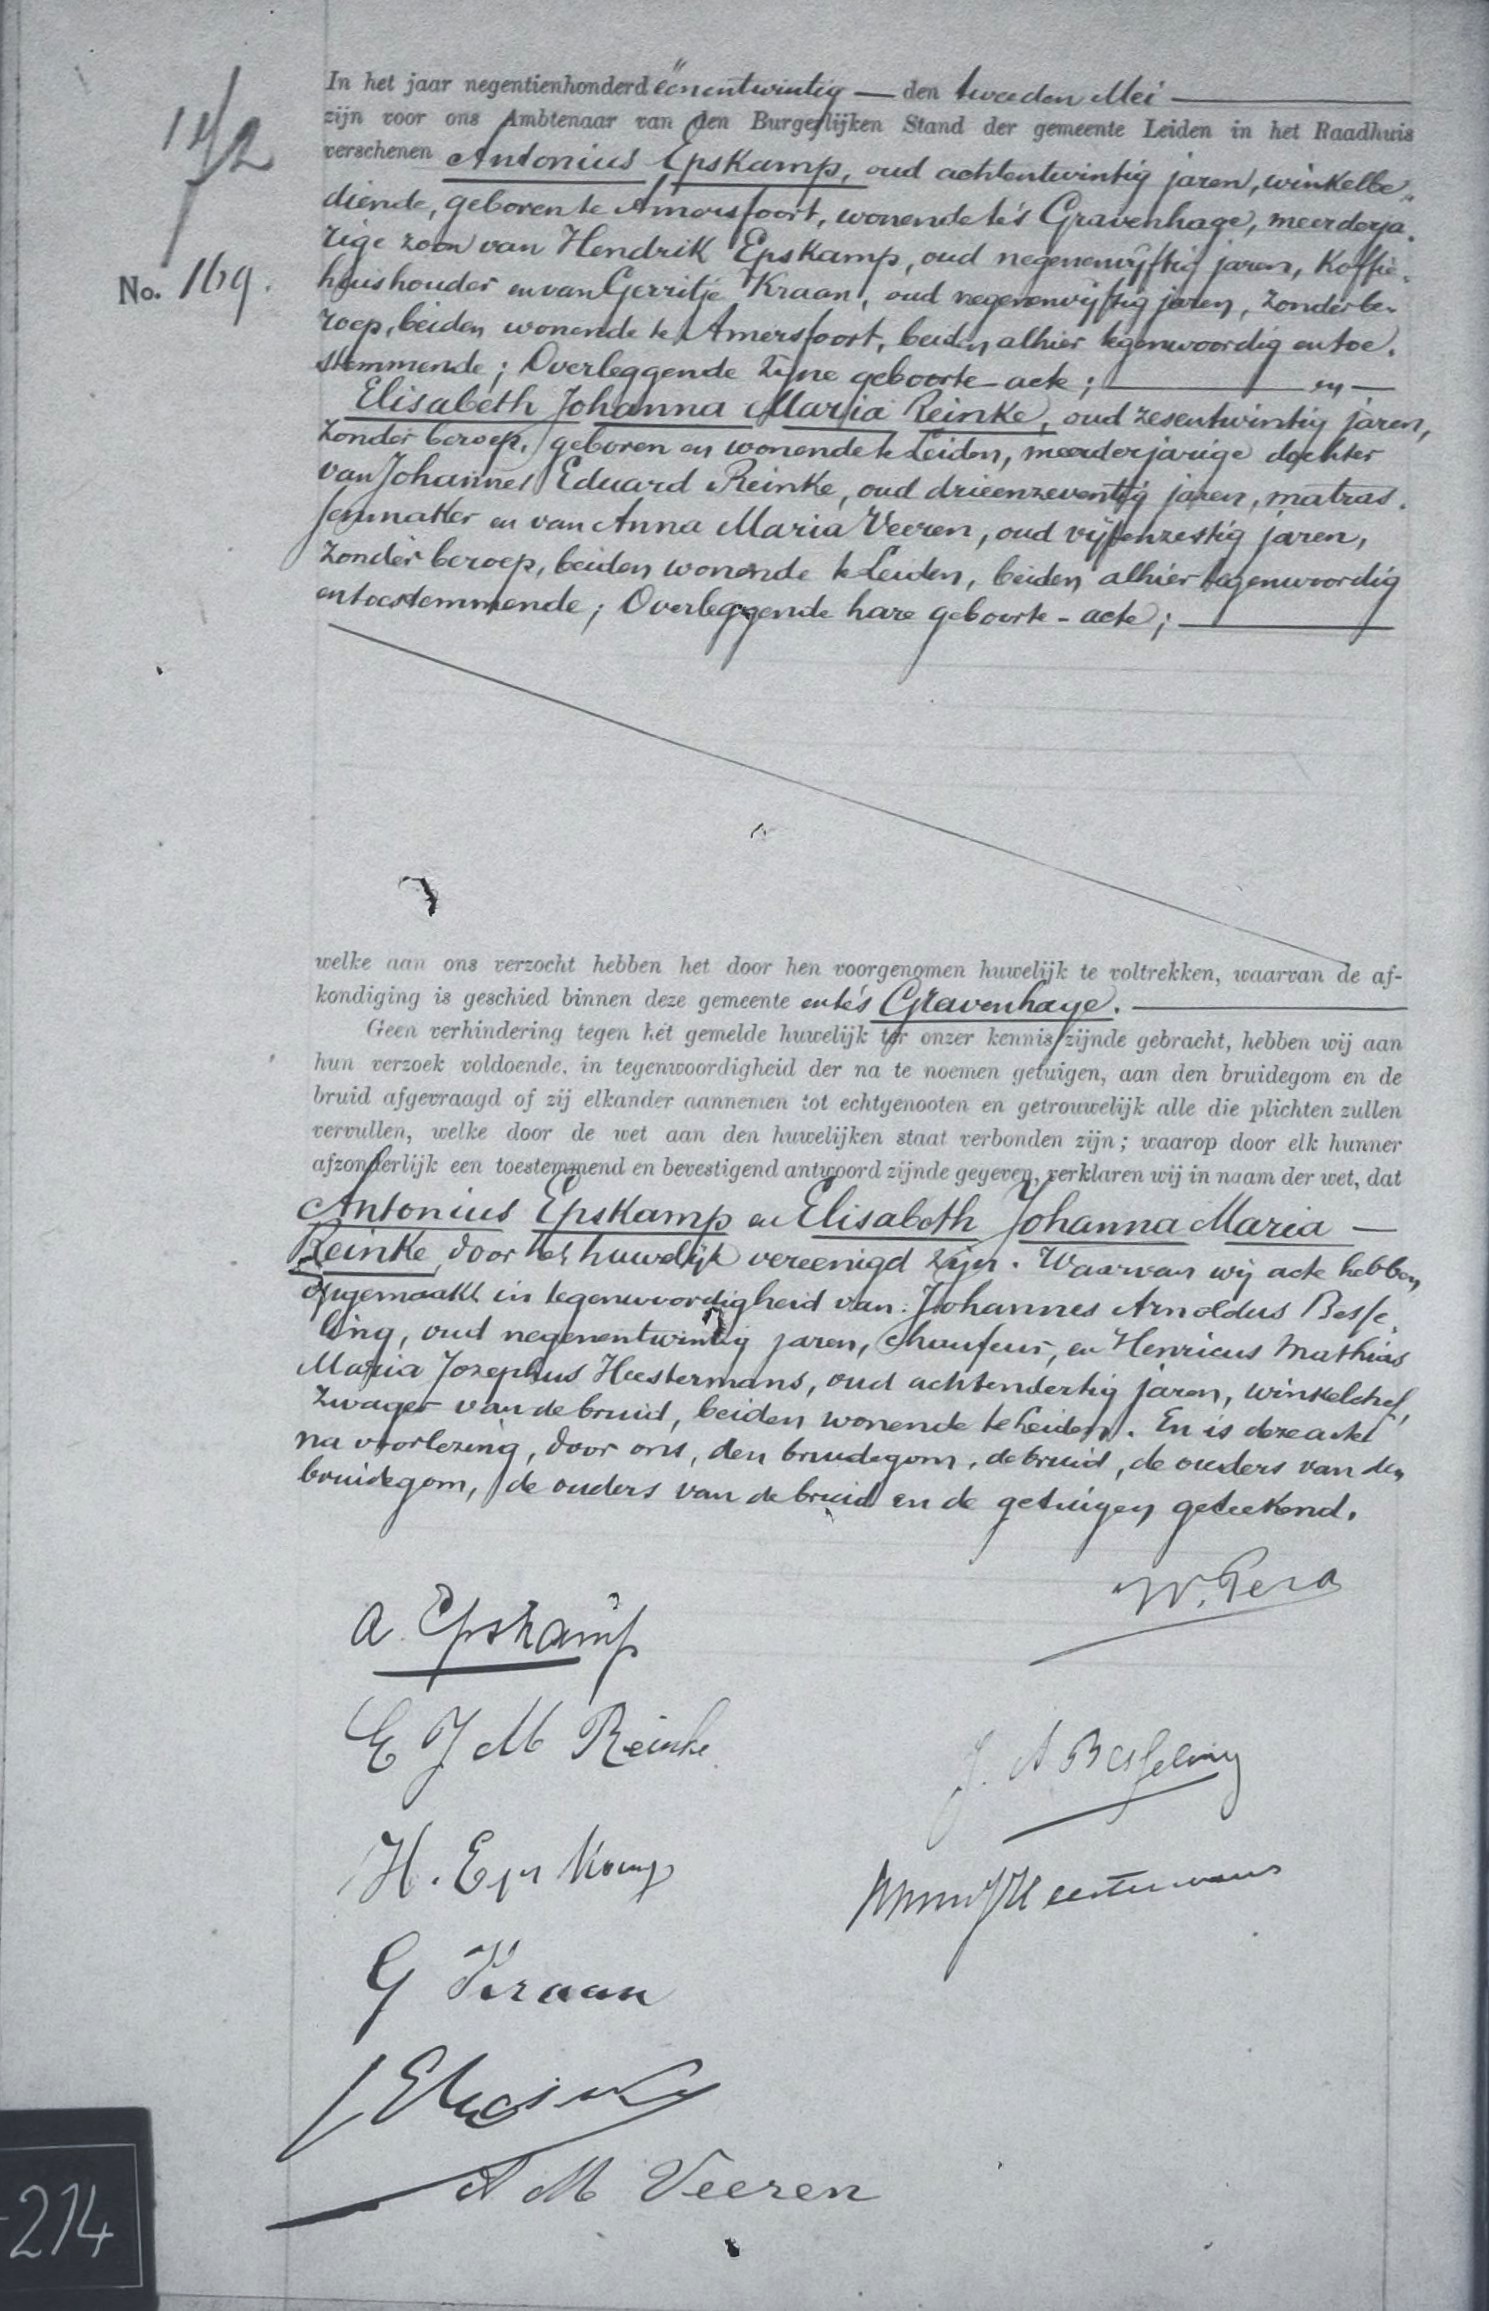 In het jaar negentienhonderd éénentwintig — den tweeden Mei —
zijn voor ons Ambtenaar van den Burgerlijken Stand der gemeente Leiden in het Raadhuis
verschenen Antonius Epskamp, oud achtentwintig jaren, winkelbe„
diende, geboren te Amersfoort, wonende te 's Gravenhage, meerderja„
rige zoon van Hendrik Epskamp, oud negenenvijftig jaren, Koffie„
huishouder en van Gerritje Kraan, oud negenenvijftig jaren, zonder be„
roep, beiden wonende te Amersfoort, beiden alhier tegenwoordig en toe„
stemmende; Overleggende zijne geboorte-acte; — en —
Elisabeth Johanna Maria Reinke, oud zesentwintig jaren,
zonder beroep, geboren en wonende te Leiden, meerderjarige dochter
van Johannes Eduard Reinke, oud drieenzeventig jaren, matras„
senmaker en van Anna Maria Veeren, oud vijfenzestig jaren,
zonder beroep, beiden wonende te Leiden, beiden alhier tegenwoordig
en toestemmende; Overleggende hare geboorte-acte; —
No. 169.
welke aan ons verzocht hebben het door hen voorgenomen huwelijk te voltrekken, waarvan de af-
kondiging is geschied binnen deze gemeente en te 's Gravenhage. —
Geen verhindering tegen het gemelde huwelijk ter onzer kennis zijnde gebracht, hebben wij aan
hun verzoek voldoende, in tegenwoordigheid der na te noemen getuigen, aan den bruidegom en de
bruid afgevraagd of zij elkander aannemen tot echtgenooten en getrouwelijk alle die plichten zullen
vervullen, welke door de wet aan den huwelijken staat verbonden zijn; waarop door elk hunner
afzonderlijk een toestemmend en bevestigend antwoord zijnde gegeven, verklaren wij in naam der wet, dat
Antonius Epskamp en Elisabeth Johanna Maria —
Reinke, door het huwelijk vereenigd zijn. Waarvan wij acte hebben
opgemaakt in tegenwoordigheid van: Johannes Arnoldus Besse„
ling, oud negenentwintig jaren, chaufeur, en Henricus Mathias
Maria Josephus Heestermans, oud achtendertig jaren, winkelchef,
zwager van de bruid, beiden wonende te Leiden. En is deze acte
na voorlezing, door ons, den bruidegom, de bruid, de ouders van den
bruidegom, de ouders van de bruid en de getuigen geteekend.
A. Epskamp
E J M Reinke
J. A Besseling
H. Epskamp
G Kraan
A M Veeren
214